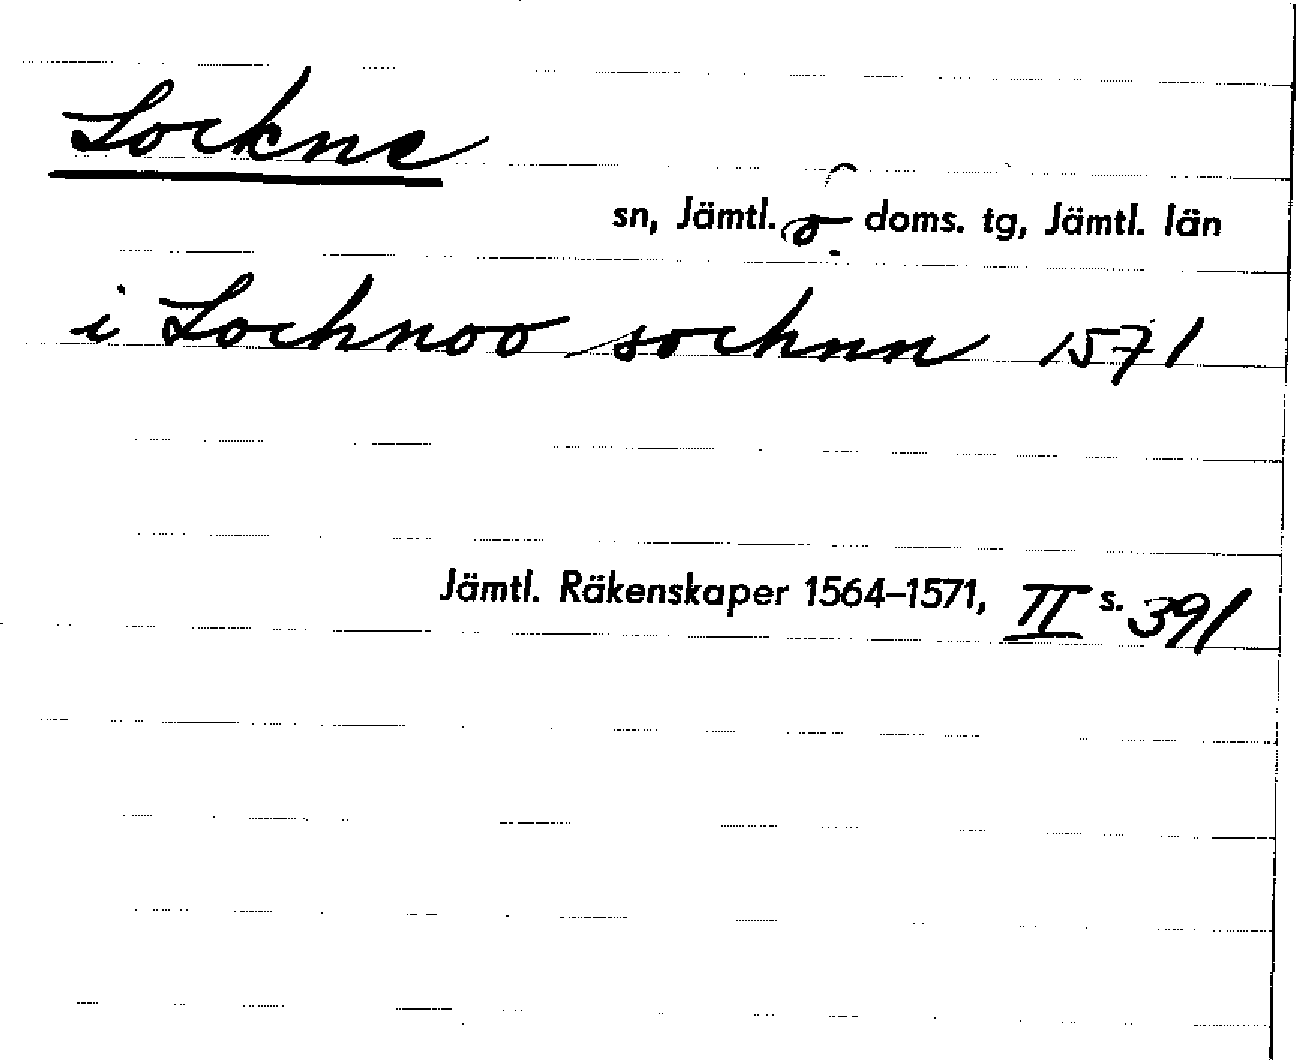 Lockne
sn, Jämtl. ö doms. tg, Jämtl. län
i Lochnoo sochnn 1571
Jämtl. Räkenskaper 1564–1571, II s. 391